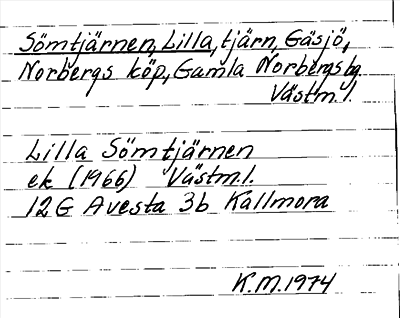 Sömtjärnen, Lilla, tjärn, Gäsjö,
Norbergs köp, Gamla Norbergsbg.
Västm.l.
Lilla Sömtjärnen
ek (1966) Västm.l.
12G Avesta 3b Kallmora
K.M.1974